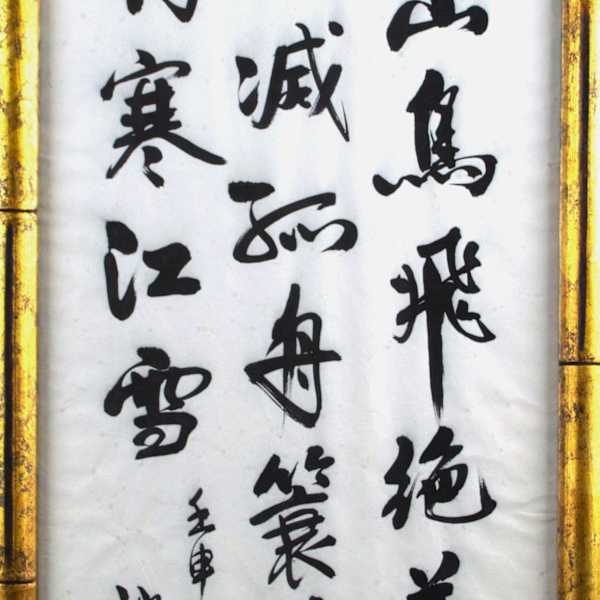 山鳥飛絶萬
滅孤舟簑
寒江雪
壬申